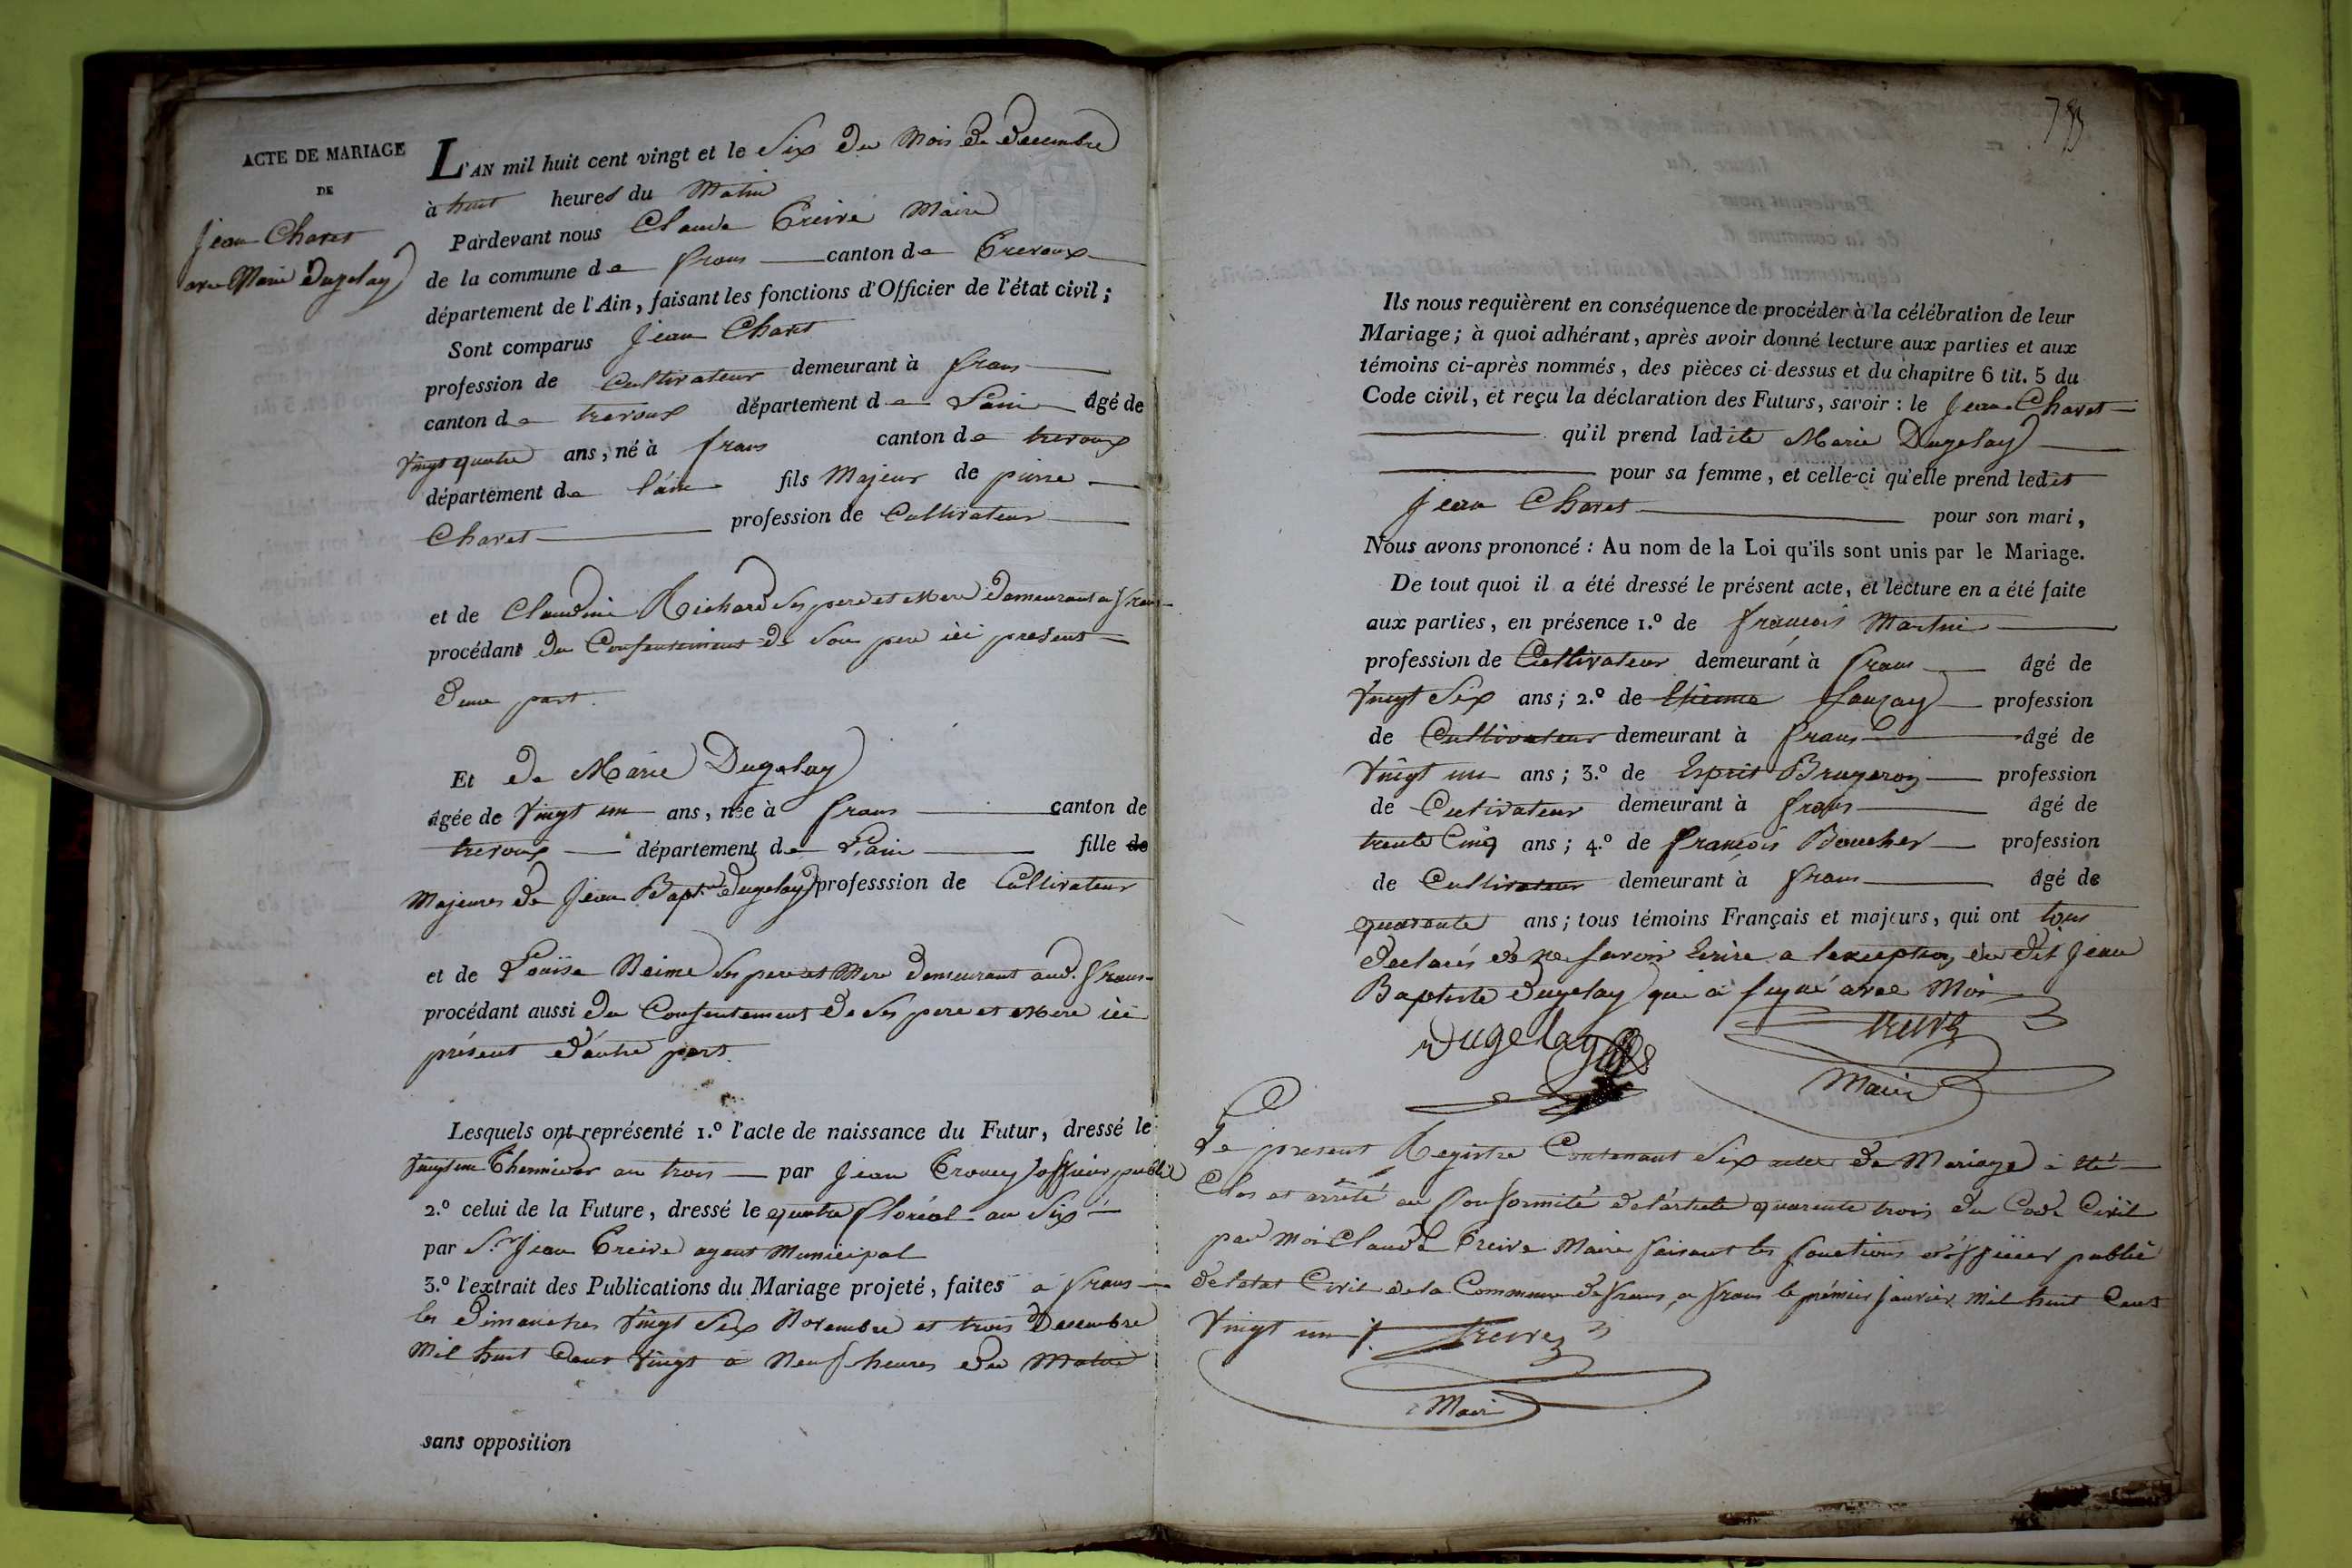 ACTE DE MARIAGE
DE
Jean Chavet
avec Marie Dugelay
L'AN mil huit cent vingt et le Six du Mois de decembre
à huit heures du Matin
Pardevant nous Claude Treive Maire
de la commune de frans canton de Trevoux
département de l'Ain, faisant les fonctions d'Officier de l'état civil;
Sont comparus Jean Chavet
profession de Cultivateur demeurant à frans
canton de trevoux département de Lain âgé de
Vingt quatre ans, né à frans canton de trevoux
département de l'ain fils Majeur de pierre
Chavet profession de Cultivateur
et de Claudine Richard ses pere et Mere demeurant a frans
procédant du Consentement de son pere ici present
d'une part.
Et de Marie Dugelay
âgée de Vingt un ans, née à frans canton de
trevoux département de Lain fille de
Majeures de Jean Bapt.te Dugelay profession de Cultivateur
et de Louise Reime ses pere et Mere demeurant aud. frans
procédant aussi du Consentement de ses pere et Mere ici
présent d'autre part.
Lesquels ont représenté 1.º l'acte de naissance du Futur, dressé le
Vingt un Thermidor an trois par Jean officier public
2.º celui de la Future, dressé le quatre floréal an Six
par S.r Jean Treive agent Municipal
3.º l'extrait des Publications du Mariage projeté, faites a frans
les dimanches Vingt Six Novembre et trois Decembre
Mil huit Cent Vingt a Neuf heures du Matin
sans opposition
Ils nous requièrent en conséquence de procéder à la célébration de leur
Mariage; à quoi adhérant, après avoir donné lecture aux parties et aux
témoins ci-après nommés, des pièces ci-dessus et du chapitre 6 tit. 5 du
Code civil, et reçu la déclaration des Futurs, savoir: le Jean Chavet
qu'il prend ladite Marie Dugelay
pour sa femme, et celle-ci qu'elle prend ledit
Jean Chavet pour son mari,
Nous avons prononcé: Au nom de la Loi qu'ils sont unis par le Mariage.
De tout quoi il a été dressé le présent acte, et lecture en a été faite
aux parties, en présence 1.º de françois Martin
profession de Cultivateur demeurant à frans âgé de
Vingt Six ans; 2.º de Etienne profession
de Cultivateur demeurant à frans âgé de
Vingt un ans; 3.º de Esprit Brugeron profession
de Cutivateur demeurant à frans âgé de
trente Cinq ans; 4.º de françois Boucher profession
de Cultivateur demeurant à frans âgé de
quarante ans; tous témoins Français et majeurs, qui ont tous
declarés de ne savoir Ecrire a lexception du dit Jean
Baptiste Dugelay qui a signé avec Moi
Dugelay treive
Maire
Le present Registre Contenant Six actes de Mariage a été
Clos et arrêté en Conformité de l'article quarente trois du Code Civil
par Moi Claude Treive Maire faisant les fonctions d'officier public
de letat Civil de la Commune de frans, a frans le prémier janvier Mil huit Cent
Vingt un treive
Maire